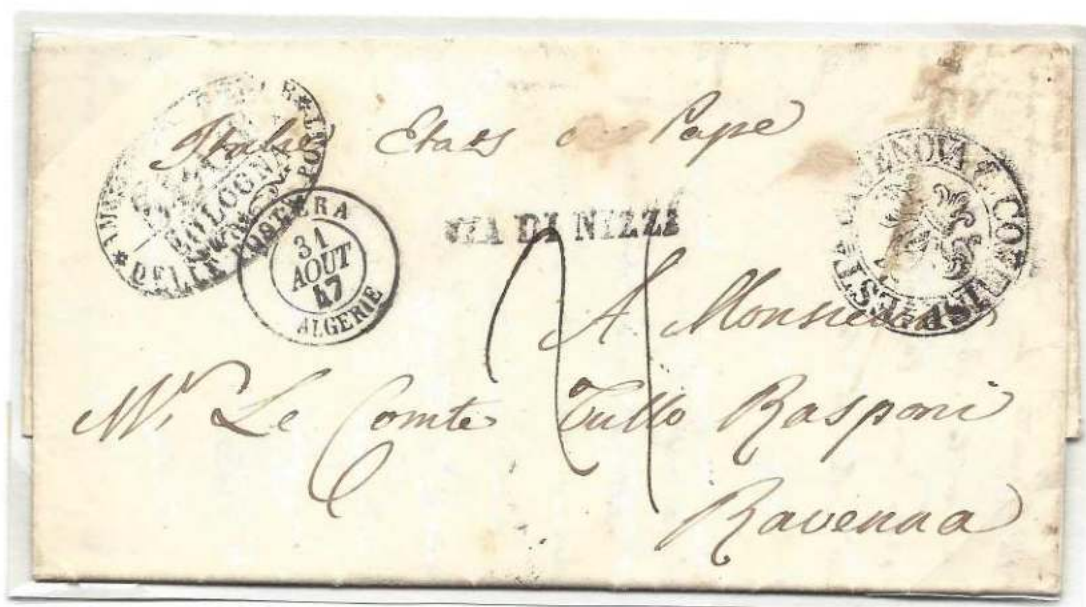 Italie Etats du Pape
BOLOGNA
DELLE
POST
31
AOUT
47
ALGERIE
VIA DI NIZZA
GENOVA
A Monsieur
Mr Le Comte Tullo Rasponi
Ravenna
21